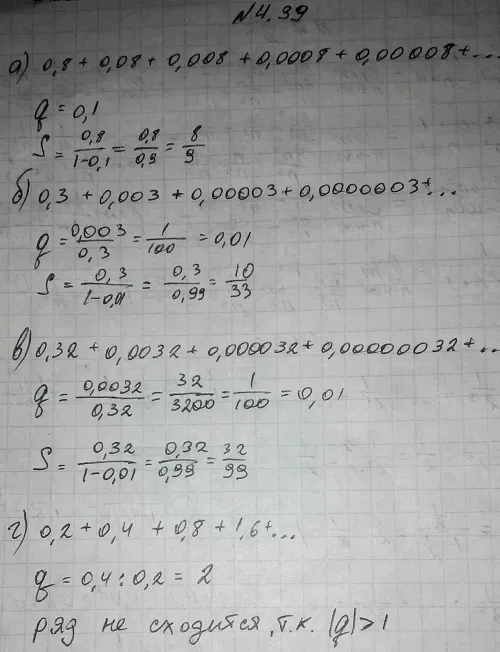 №4.39
а) 0,8 + 0,08 + 0,008 + 0,0008 + 0,00008 + ...
q = 0,1
S = 0,8/(1-0,1) = 0,8/0,9 = 8/9
б) 0,3 + 0,003 + 0,00003 + 0,0000003 + ...
q = 0,003/0,3 = 1/100 = 0,01
S = 0,3/(1-0,01) = 0,3/0,99 = 10/33
в) 0,32 + 0,0032 + 0,000032 + 0,00000032 + ...
q = 0,0032/0,32 = 32/3200 = 1/100 = 0,01
S = 0,32/(1-0,01) = 0,32/0,99 = 32/99
г) 0,2 + 0,4 + 0,8 + 1,6 + ...
q = 0,4 : 0,2 = 2
ряд не сходится, т.к. |q| > 1